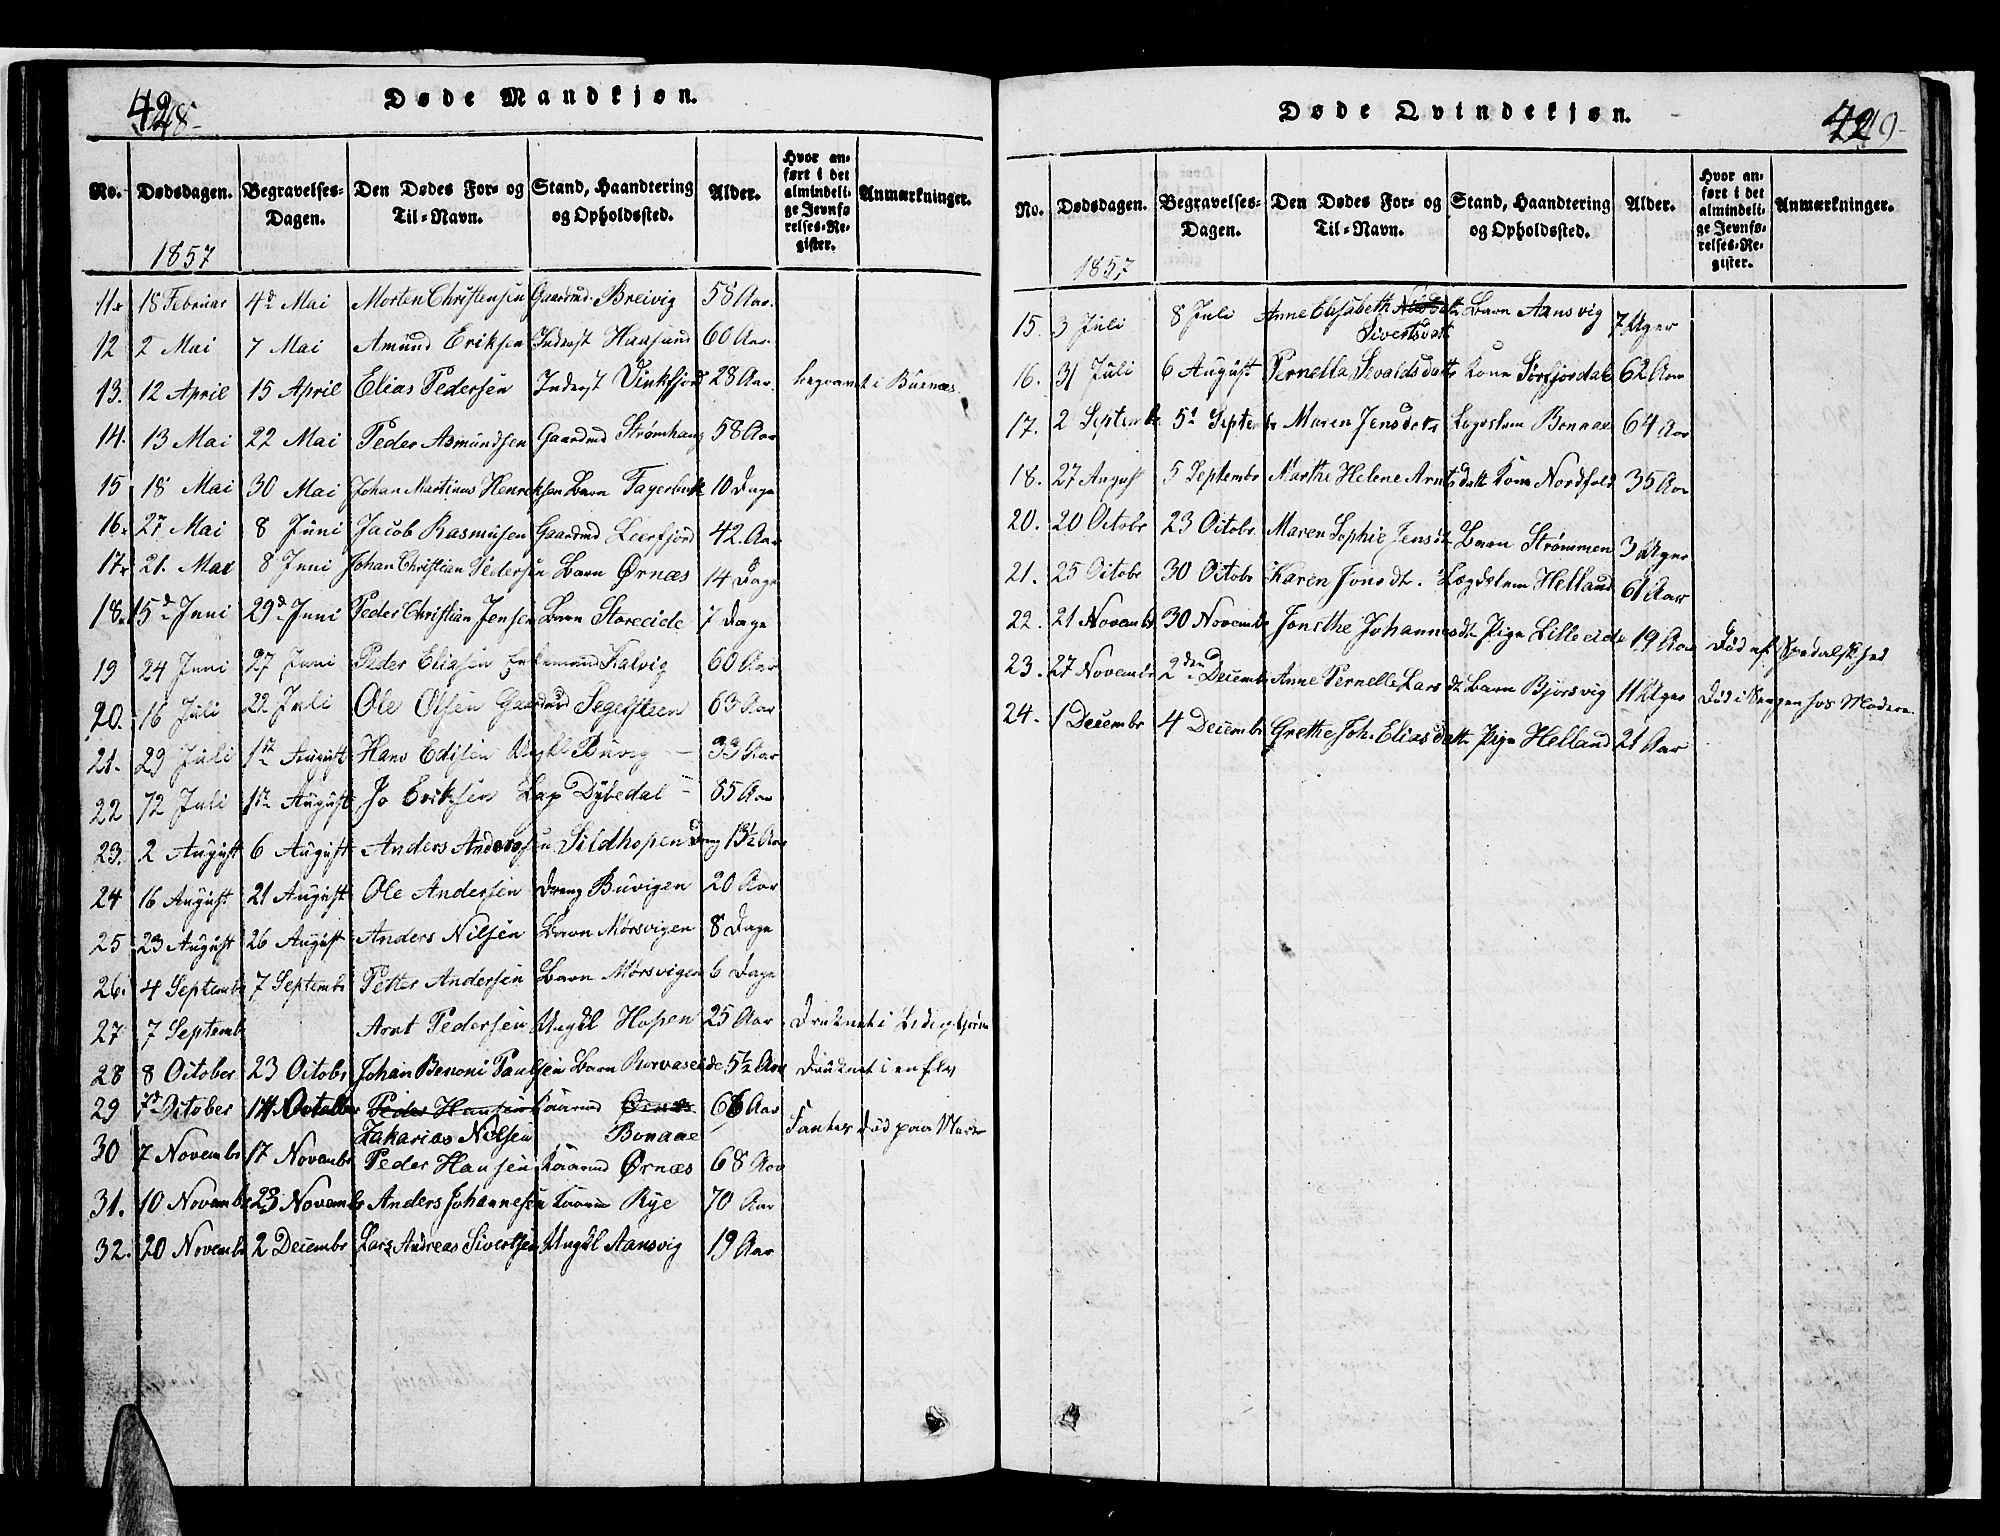 42
Døde Mandkjøn.
No. Dødsdagen. Begravelses-Dagen. Den Dødes For- og Til-Navn. Stand, Haandtering og Opholdssted. Alder. Hvor anført i det almindelige Jevnførelses-Register. Anmærkninger.
1857
11 18 Februar 4d Mai Morten Christensen Gaardmd Breivig 58 Aar
12 2 Mai 7 Mai Amund Eriksen Inderst 60 Aar
13. 12 April 15 April Elias Pedersen Inderst Vinkfjord 28 Aar begravet i Buenæs
14. 13 Mai 22 Mai Peder Asmundsen Gaardmd Strømhaug 58 Aar
15 18 Mai 30 Mai Johan Martinus Henriksen Barn Fagerbak 10 Dage
16 27 Mai 8 Juni Jacob Rasmusen Gaardmd Leerfjord 42 Aar
17 21. Mai 8 Juni Johan Christian Pedersen Barn Ørnæs 14 Dage
18 15d Juni 29d Juni Peder Christian Jensen Barn Storeeide 7 Dage
19 24 Juni 27 Juni Peder Eliasen Enkemand Kalvig 60 Aar
20. 16 Juli 22 Juli Ole Olsen Gaardmd Segelsteen 63 Aar
21. 29 Juli 1ste August Hans Edisen Ungkl Buvig 33 Aar
22 12 Juli 1ste August Jo Eriksen Lap Dybedal 85 Aar
23. 2 August 6 August Anders Andersen Sildhopen Dreng 13½ Aar
24 16 August 21 August Ole Andersen Dreng Buvigen 20 Aar
25 23 August 26 August Anders Nilsen Barn Mørsvigen 8 Dage
26. 4 Septembr 7 Septembr Petter Andersen Barn Mørsvigen 6 Dage
27 7 Septembr Arnt Pedersen Ungkl Hopen 25 Aar Druknet i
28 8 October 23 Octobr Johan Benoni Paulsen Barn Rorvaseide 5½ Aar Druknet i en Elv
29 7d October 14 October Peder Hansen Gaardmd Ørnæs 66 Aar
Zakarias Nilsen Bonaae Fantes død paa
30 7 Novembr 17 Novembr Peder Hansen Gaardmd Ørnæs 68 Aar
31. 10 Novembr 23 Novembr Anders Johannesen Rye 70 Aar
32. 20 Novembr 2 Decembr Lars Andreas Sivertsen Ungkl Aansvig 19 Aar
Døde Qvindekjøn.
No. Dødsdagen. Begravelses-Dagen. Den Dødes For- og Til-Navn. Stand, Haandtering og Opholdssted. Alder. Hvor anført i det almindelige Jevnførelses-Register. Anmærkninger.
1857
15. 3 Juli 8 Juli Anne Elisabeth Barn Aansvig 7 Uger
Sivertsdatt
16. 31 Juli 6 August Pernella Sivaldsdatt Kone Sørfjordal 62 Aar
17. 2 Septembr 5d Septembr Maren Jensdatt Lægdslem Bonaae 64 Aar
18. 27 August 5 Septembr Marthe Helene Arntsdatt Kone Nordfold 35 Aar
20. 20 Octobr 23 Octobr Maren Sophie Jensdt Barn Strømmen 3 Uger
21. 25 Octobr 30 Octobr Karen Jonsdt. Lægdslem Helland 61 Aar
22. 21 Novembr 30 Novembr Jonethe Johannesdt Pige Lilleeide 19 Aar Død af Spedalskhed
23. 27 Novembr 2den Decembr Anne Pernelle Larsdt Barn Bjørsvig 11 Uger Død i Sengen hos Moderen
24. 1 Decembr 4 Decembr Grethe Joh. Eliasdatt Pige Helland 21 Aar